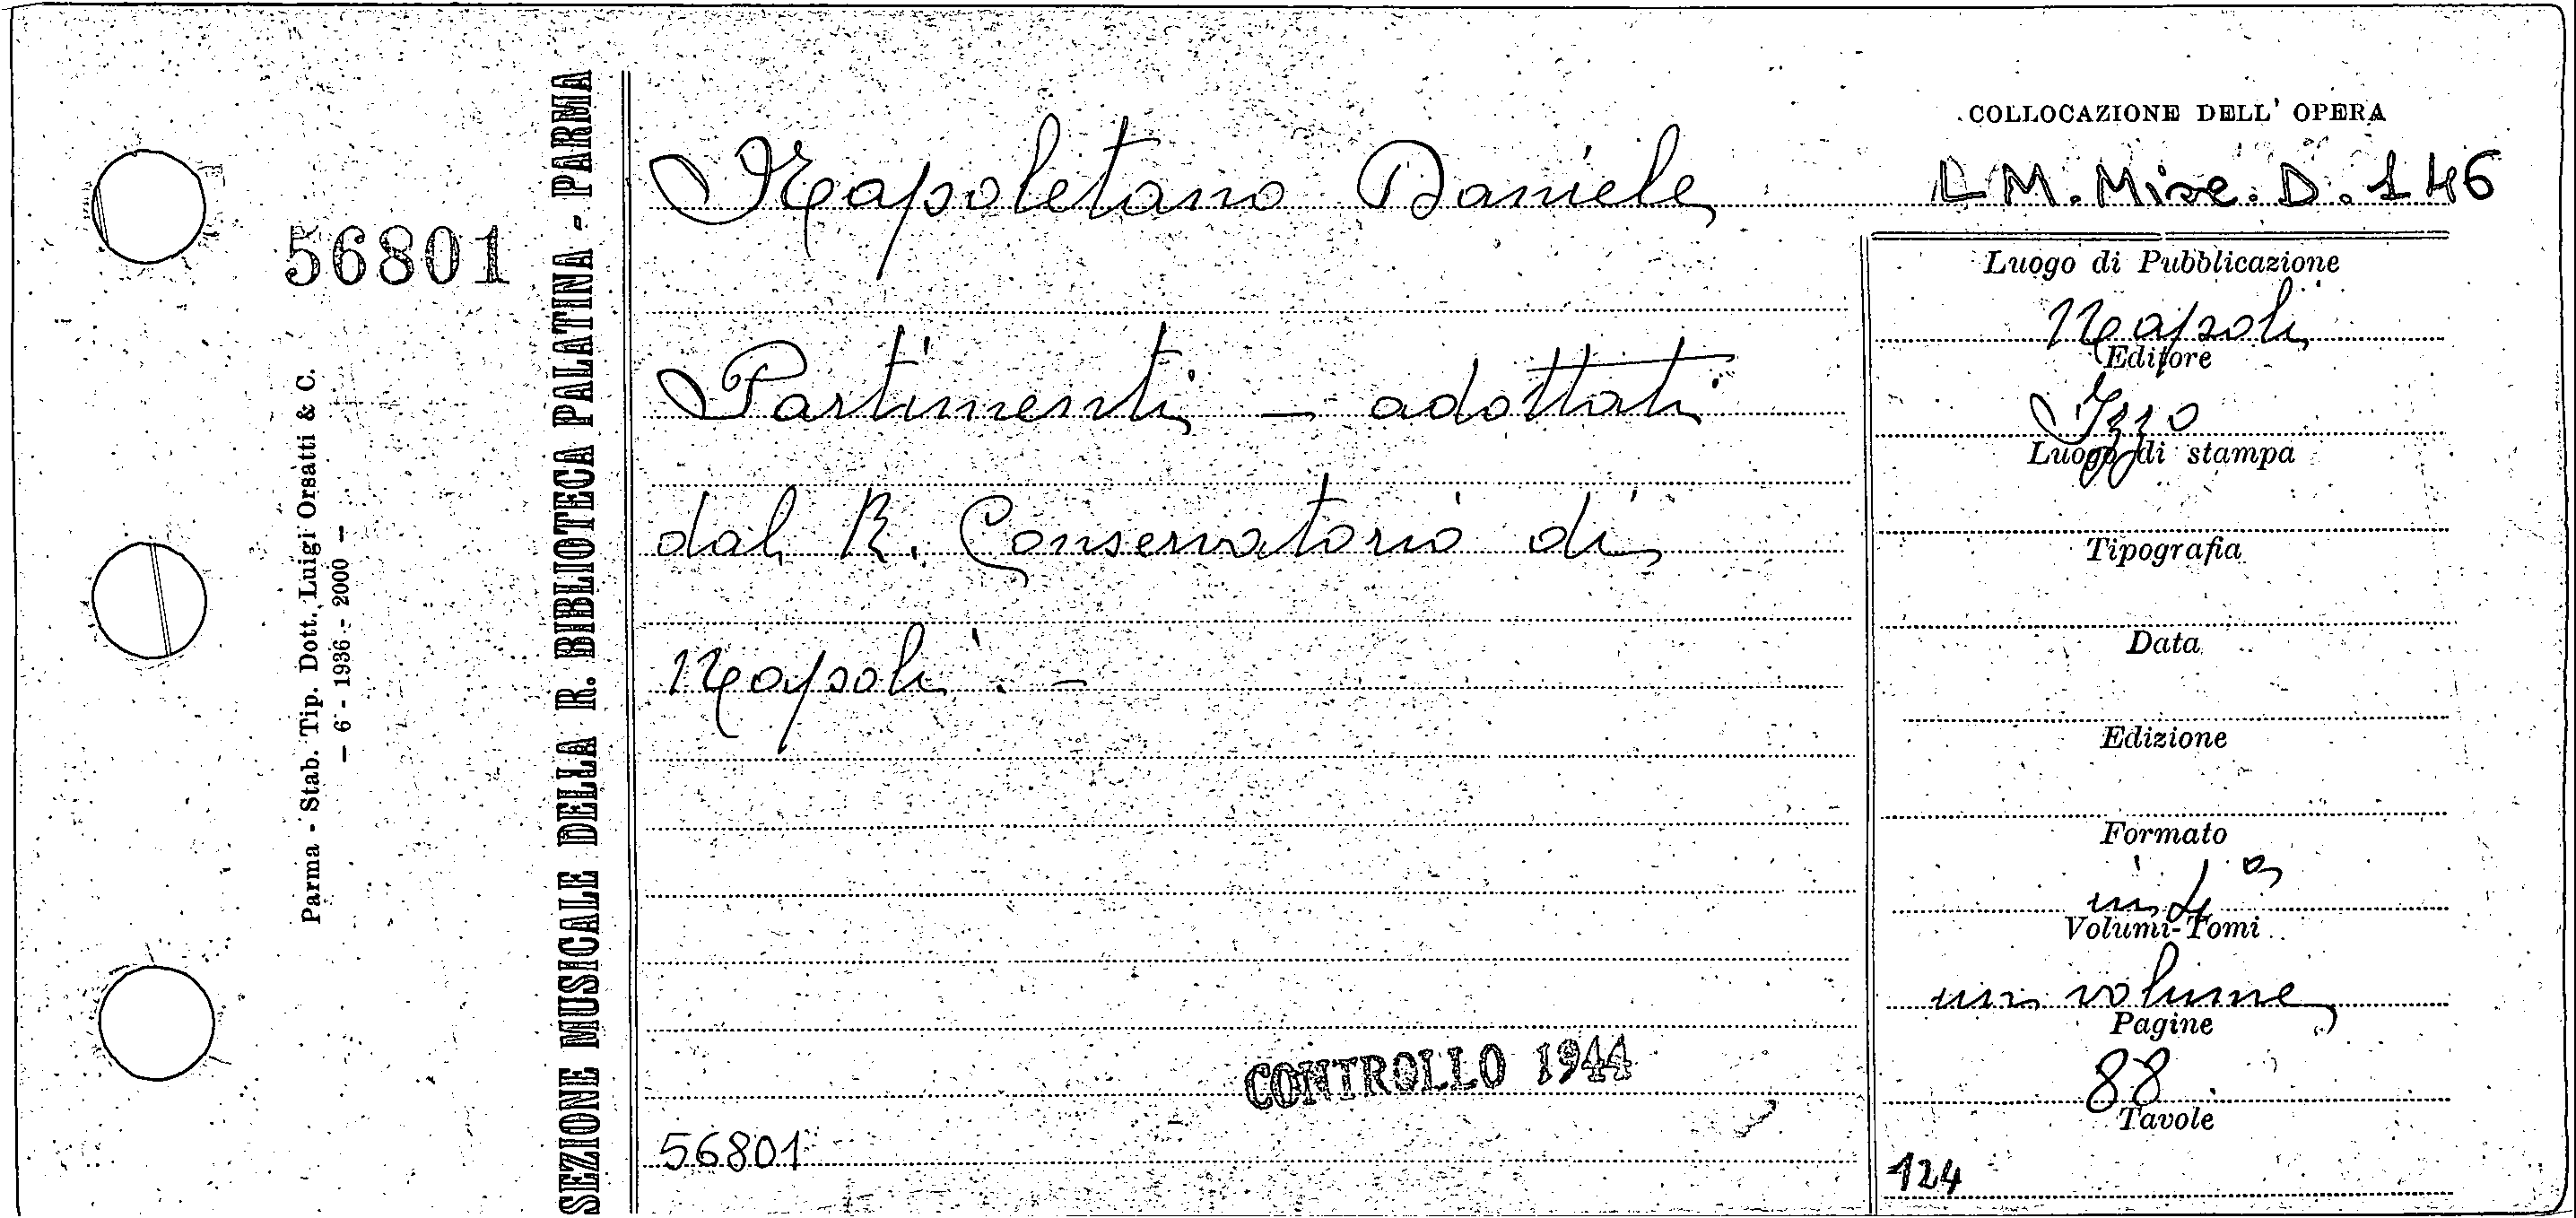 56801
Parma - Stab. Tip. Dott. Luigi Orsatti & C.
– 6 - 1936 - 2000 –
SEZIONE MUSICALE DELLA R. BIBLIOTECA PALATINA - PARMA
Napoletano Daniele
Partimenti – adottati
dal R. Conservatorio di
Napoli. –
CONTROLLO 1944
56801
COLLOCAZIONE DELL' OPERA
L M. Misc. D. 146
Luogo di Pubblicazione
Napoli
Editore
Izzo
Luogo di stampa
Tipografia
Data
Edizione
Formato
in 4°
Volumi-Tomi
un volume
Pagine
88
Tavole
124